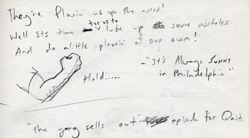 They're Plowin' us up the asses!
Well its time for us to lube up some assholes
And do a little plowin' of our own!
Hold.....
- "It's Always Sunny
in Philadelphia"
"the gang sells out" episode for Quit